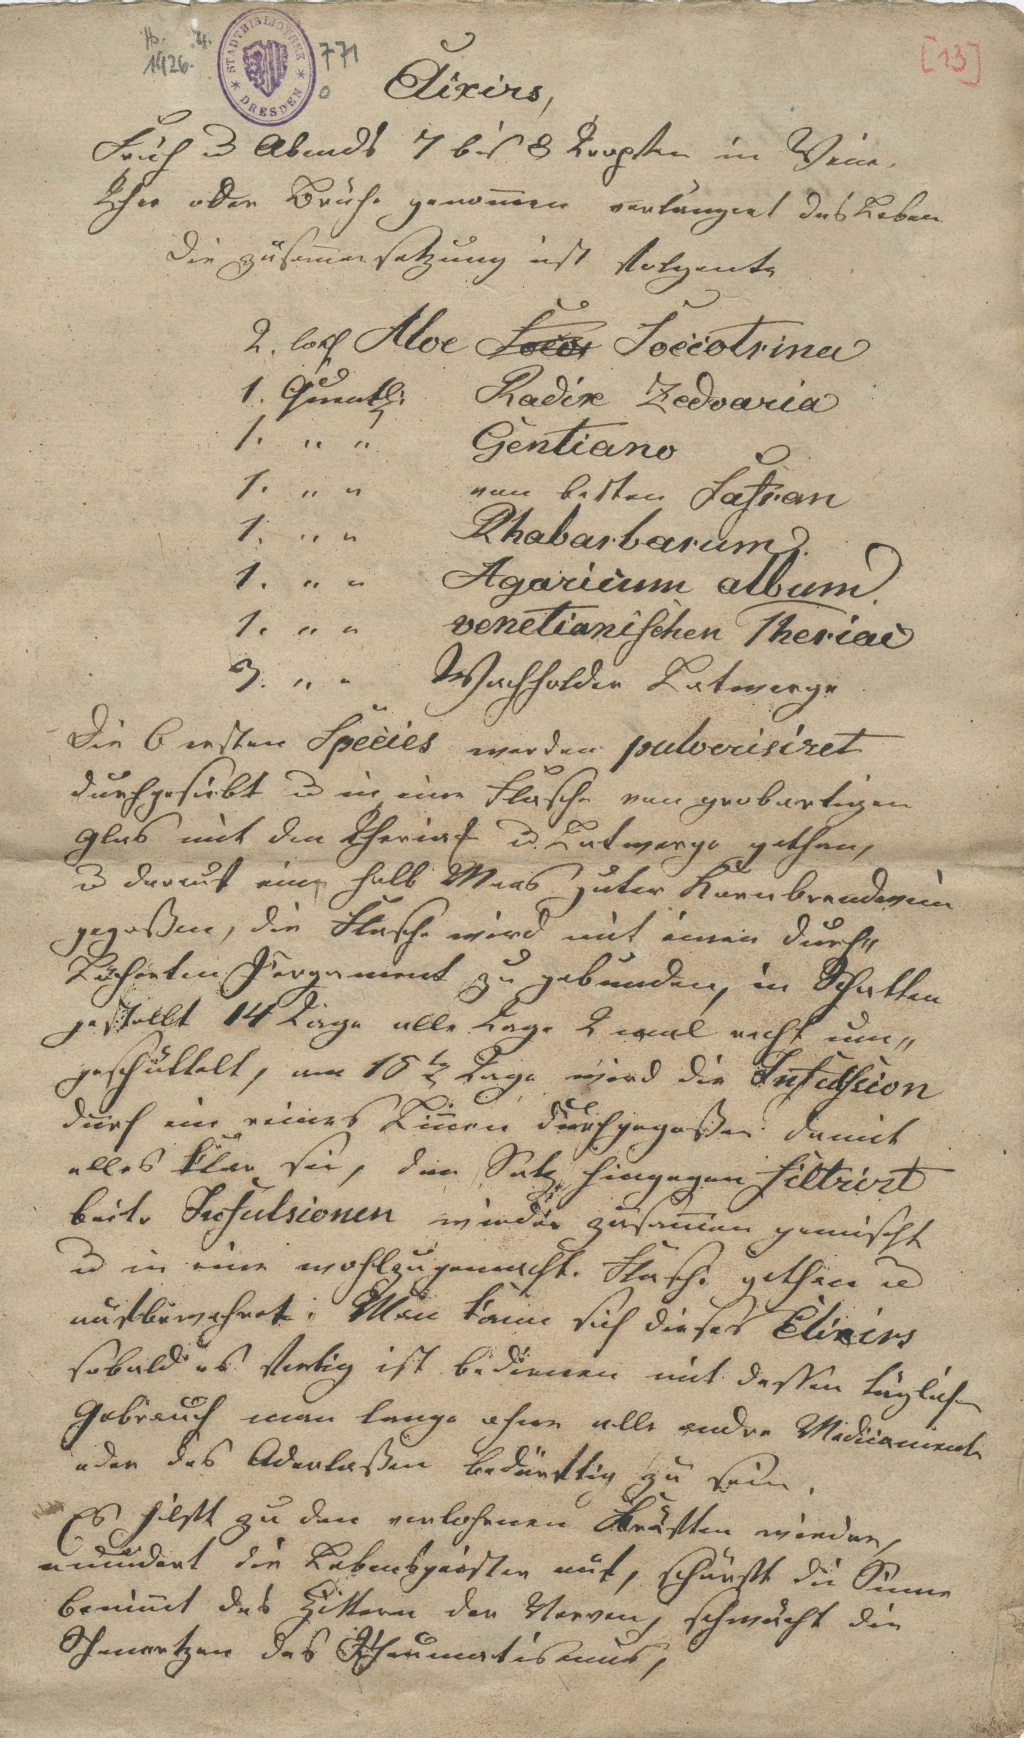 Hb. 4.
1926.
STADTBIBLIOTHEK
* DRESDEN *
771
0
[13]
Elixirs,
Früh u Abends 7 bis 8 Tropffen in Wein,
Thee oder Brühe genom̄en verlängert das Leben
Die zusam̄ensetzung ist folgente
2. loth Aloe Socot Soccotrina
1. Quentl: Radix Zedoaria
1. " " Gentiano
1. " " vom besten Safran
1. " " Rhabarbarum.
1. " " Agaricum album.
1. " " venetianischen Theriac
3. " " Wachholder Latwerge
Die 6 ersten Species werden pulverisiret
durchgesiebt u in eine Flasche von grobartigen
Glas mit den Theriak u. Latwerge gethan,
u darauf ein halb Maas guter Kornbrandwein
gegoßen, die Flasche wird mit einen durch"
Löcherten Pergament zu gebunden, in Schatten
gestellt 14 Tage alle Tage 2 mal recht um"
geschüttelt, am 15 Tage wird die Infulsion
durch ein reines Lin̄en durchgegoßen damit
alles klar sei, der Satz hingegen filtrirt
beite Infulsionen wieder zusam̄en gemischt
u in eine wohlzugemachte Flasche gethan u
aufbewahret. Man kann sich dieses Elixirs
sobald es fertig ist bedienen mit dessen täglichen
Gebrauch man lange ohne alle andre Medicamente
oder des Aderlaßen bedürftig zu sein.
Es hilft zu den verlohrnen Kräfften wieder,
muntert die Lebensgeister auf, schärft die Sinne
benim̄t das Zittern der Nerven, schwächt die
Schmertzen des Rheumatismus,